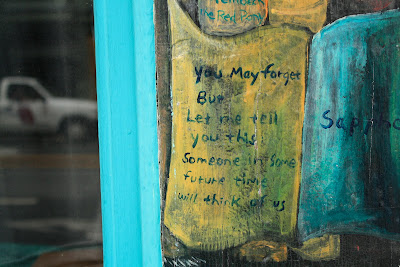 The Red Pony
You May forget
But
Let me tell
you this
Someone in some
future time
will think of us